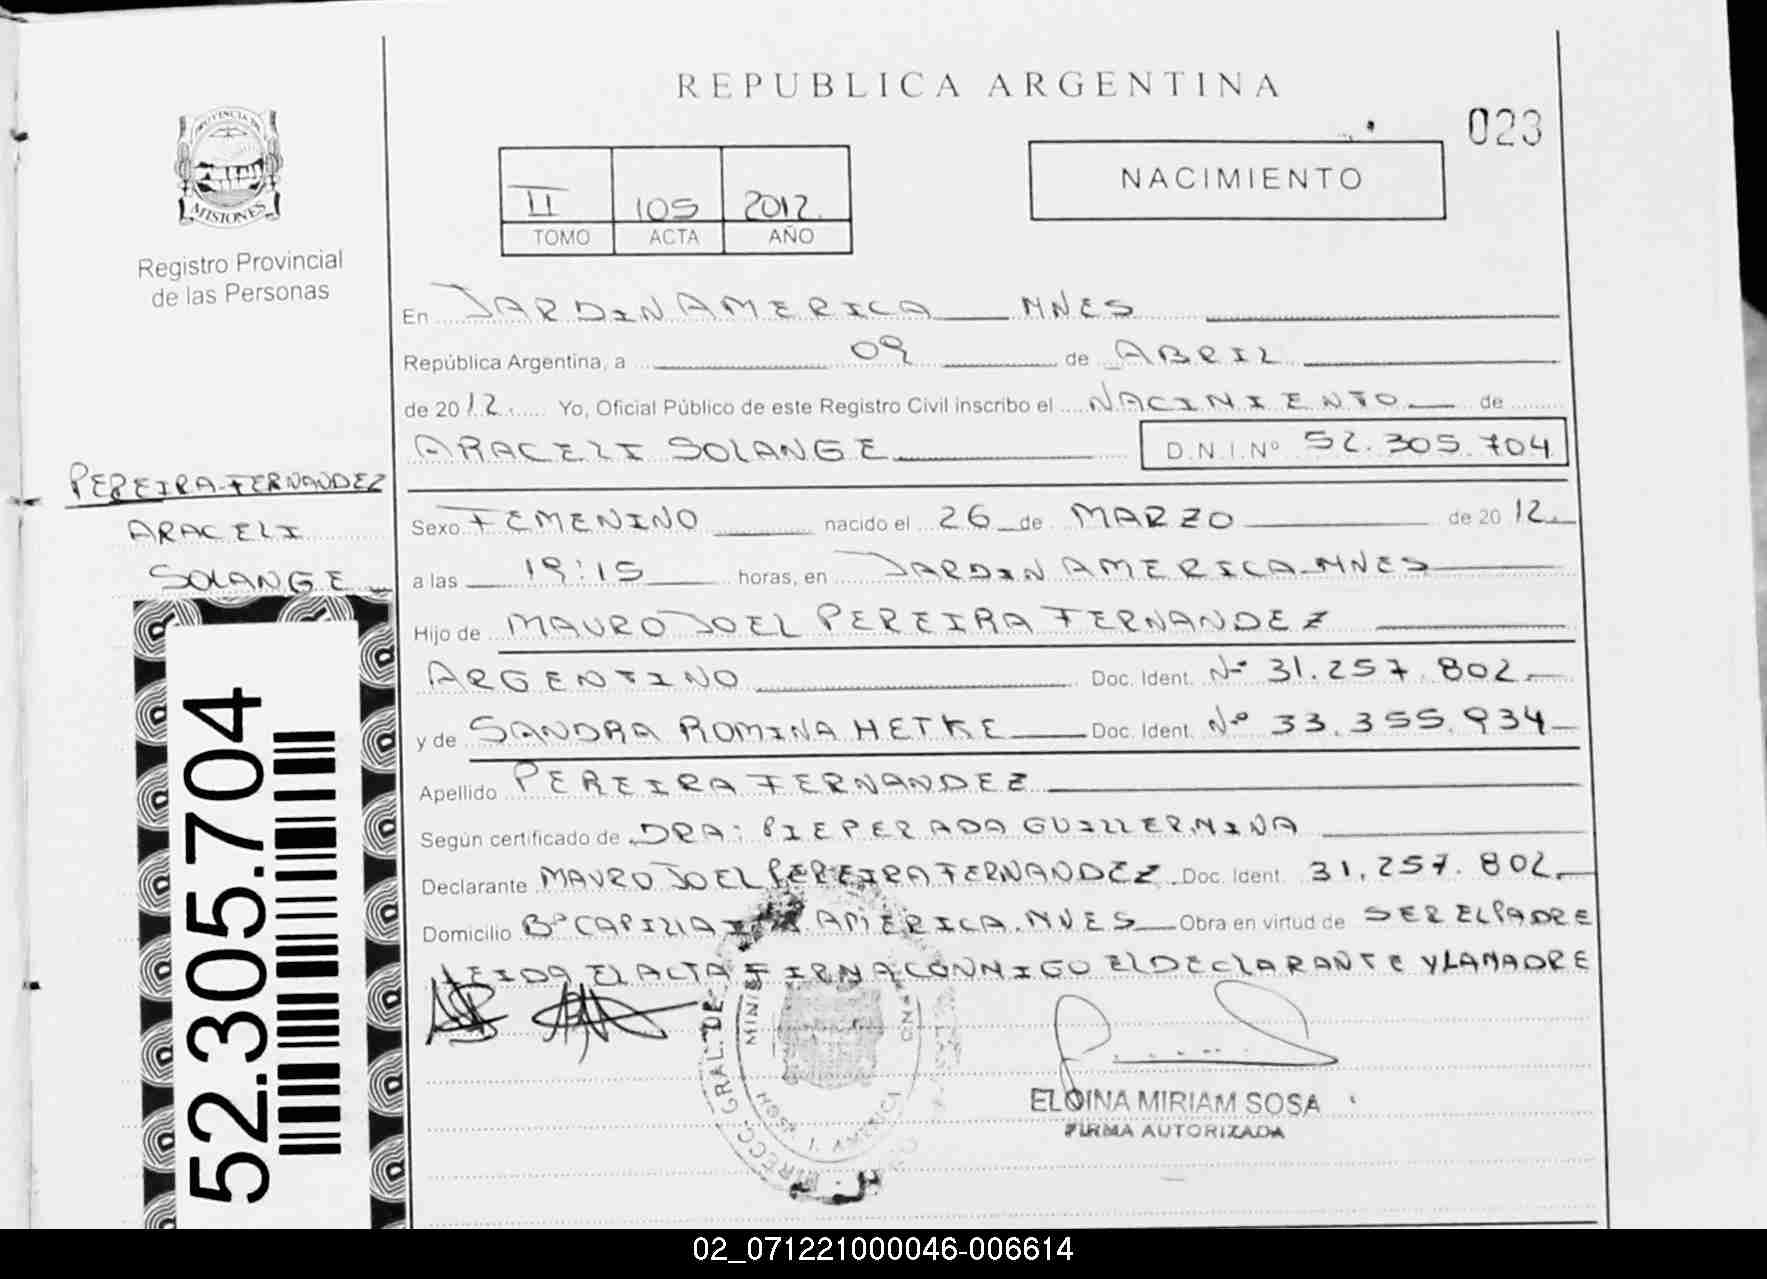 REPUBLICA ARGENTINA
023
PROVINCIA DE
MISIONES
Registro Provincial
de las Personas
II 105 2012
TOMO ACTA AÑO
NACIMIENTO
En JARDIN AMERICA MNES
República Argentina, a 09 de ABRIL
de 2012 Yo, Oficial Público de este Registro Civil inscribo el NACIMIENTO de
ARACELI SOLANGE D.N.I.Nº 52.305.704
PEREIRA FERNANDEZ
ARACELI
SOLANGE
Sexo FEMENINO nacido el 26 de MARZO de 2012
a las 19:15 horas, en JARDIN AMERICA MNES
Hijo de MAURO JOEL PEREIRA FERNANDEZ
ARGENTINO Doc. Ident. Nº 31.257.802
y de SANDRA ROMINA HETKE Doc. Ident. Nº 33.355.934
Apellido PEREIRA FERNANDEZ
Según certificado de DRA: PIEPER ADA GUILLERMINA
Declarante MAURO JOEL PEREIRA FERNANDEZ Doc. Ident. 31.257.802
Domicilio Bº CAPILLA AMERICA. MNES Obra en virtud de SER EL PADRE
LEIDA EL ACTA FIRMA CONMIGO EL DECLARANTE Y LA MADRE
52.305.704
DIRECC. GRAL. DE
ELOINA MIRIAM SOSA
FIRMA AUTORIZADA
02_071221000046-006614